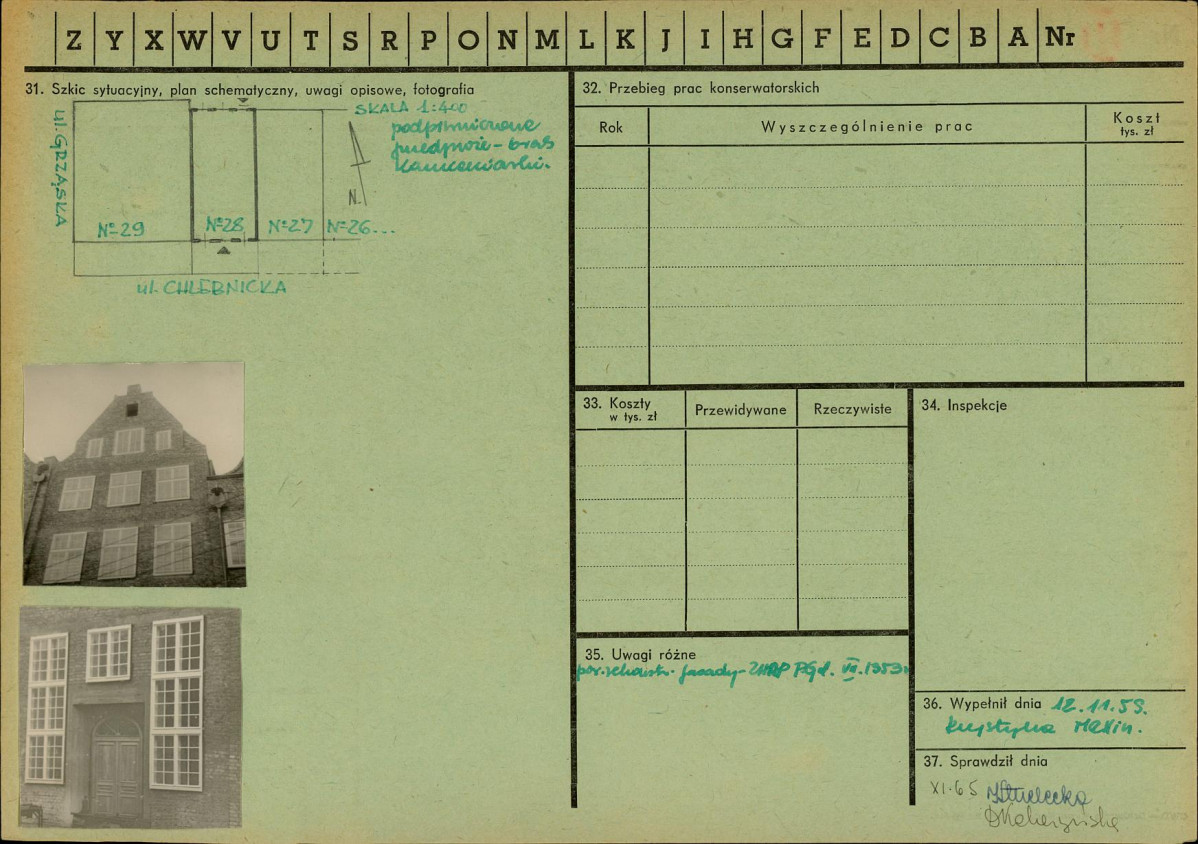 Z Y X W V U T S R P O N M L K J I H G F E D C B A Nr
31. Szkic sytuacyjny, plan schematyczny, uwagi opisowe, fotografia
SKALA 1:400
podpiwniczone
przedproże –
ul. GRZĄSKA
N.
Nº 29
Nº 28
Nº 27
Nº 26...
ul. CHLEBNICKA
32. Przebieg prac konserwatorskich
Rok
Wyszczególnienie prac
Koszt
tys. zł
33. Koszty
w tys. zł
Przewidywane
Rzeczywiste
34. Inspekcje
35. Uwagi różne
fasady – PGd. VII. 1953.
36. Wypełnił dnia 12.11.59.
Krystyna
37. Sprawdził dnia
XI.65